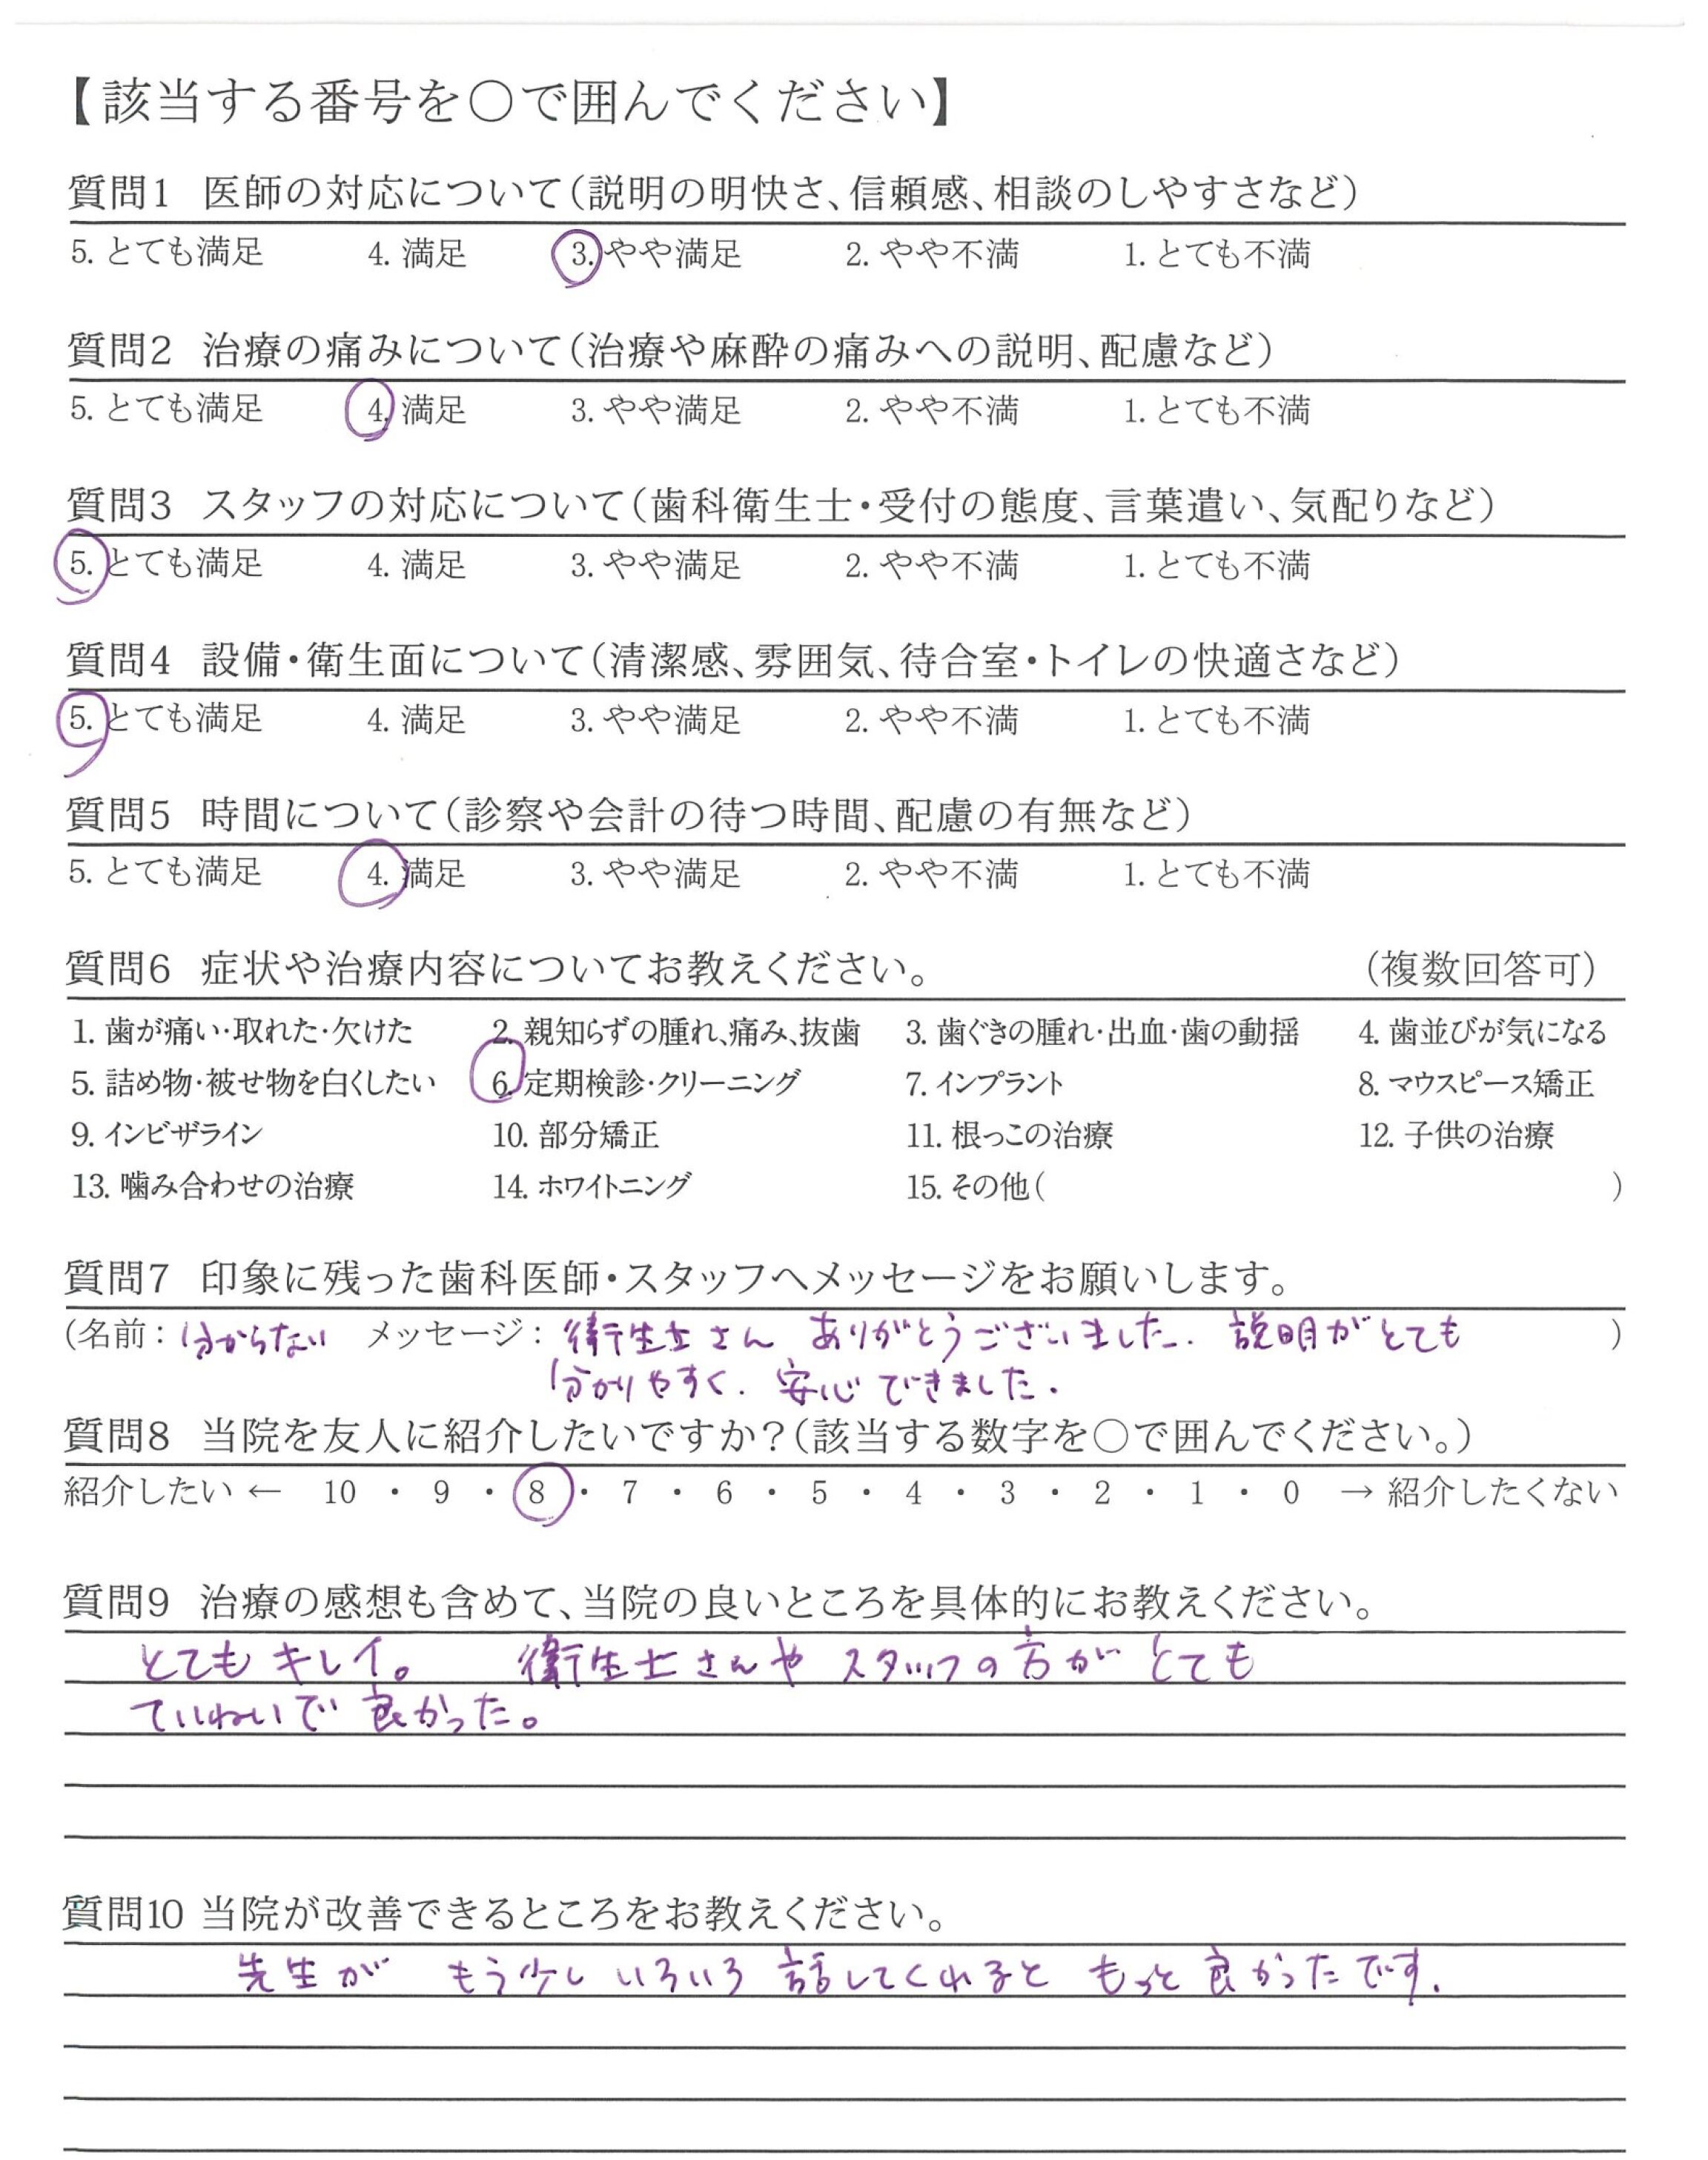 【該当する番号を〇で囲んでください】
質問1 医師の対応について(説明の明快さ、信頼感、相談のしやすさなど)
5. とても満足 4. 満足 3. やや満足 2. やや不満 1. とても不満
質問2 治療の痛みについて(治療や麻酔の痛みへの説明、配慮など)
5. とても満足 4. 満足 3. やや満足 2. やや不満 1. とても不満
質問3 スタッフの対応について(歯科衛生士・受付の態度、言葉遣い、気配りなど)
5. とても満足 4. 満足 3. やや満足 2. やや不満 1. とても不満
質問4 設備・衛生面について(清潔感、雰囲気、待合室・トイレの快適さなど)
5. とても満足 4. 満足 3. やや満足 2. やや不満 1. とても不満
質問5 時間について(診察や会計の待つ時間、配慮の有無など)
5. とても満足 4. 満足 3. やや満足 2. やや不満 1. とても不満
質問6 症状や治療内容についてお教えください。 (複数回答可)
1. 歯が痛い・取れた・欠けた 2. 親知らずの腫れ、痛み、抜歯 3. 歯ぐきの腫れ・出血・歯の動揺 4. 歯並びが気になる
5. 詰め物・被せ物を白くしたい 6. 定期検診・クリーニング 7. インプラント 8. マウスピース矯正
9. インビザライン 10. 部分矯正 11. 根っこの治療 12. 子供の治療
13. 噛み合わせの治療 14. ホワイトニング 15. その他( )
質問7 印象に残った歯科医師・スタッフへメッセージをお願いします。
(名前: 分からない メッセージ: 衛生士さん ありがとうございました. 説明がとても )
分かりやすく. 安心できました.
質問8 当院を友人に紹介したいですか?(該当する数字を〇で囲んでください。)
紹介したい ← 10 ・ 9 ・ 8 ・ 7 ・ 6 ・ 5 ・ 4 ・ 3 ・ 2 ・ 1 ・ 0 → 紹介したくない
質問9 治療の感想も含めて、当院の良いところを具体的にお教えください。
とてもキレイ。 衛生士さんや スタッフの方が とても
ていねいで 良かった。
質問10 当院が改善できるところをお教えください。
先生が もう少し いろいろ 話してくれると もっと 良かったです.